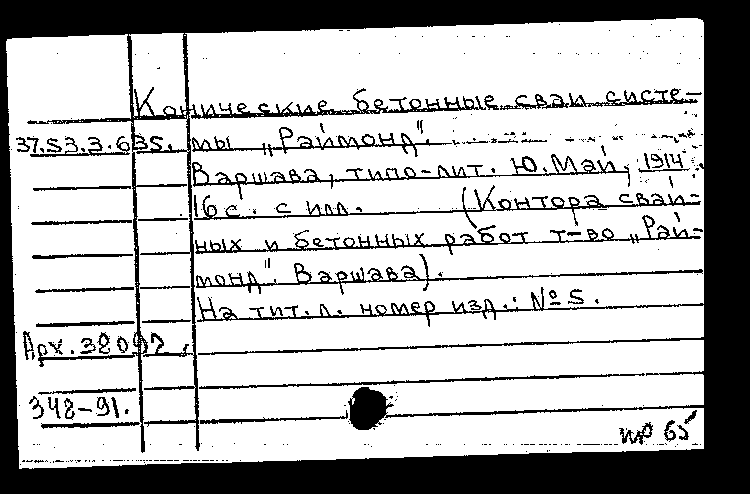 Конические бетонные сваи систе-
37.53.3.635. мы „Раймонд".
Варшава, типо-лит. Ю. Май, 1914.
16 с. с илл. (Контора свай-
ных и бетонных работ т-во „Рай-
монд". Варшава).
На тит. л. номер изд.: № 5.
Арх. 38092.
348-91.
65